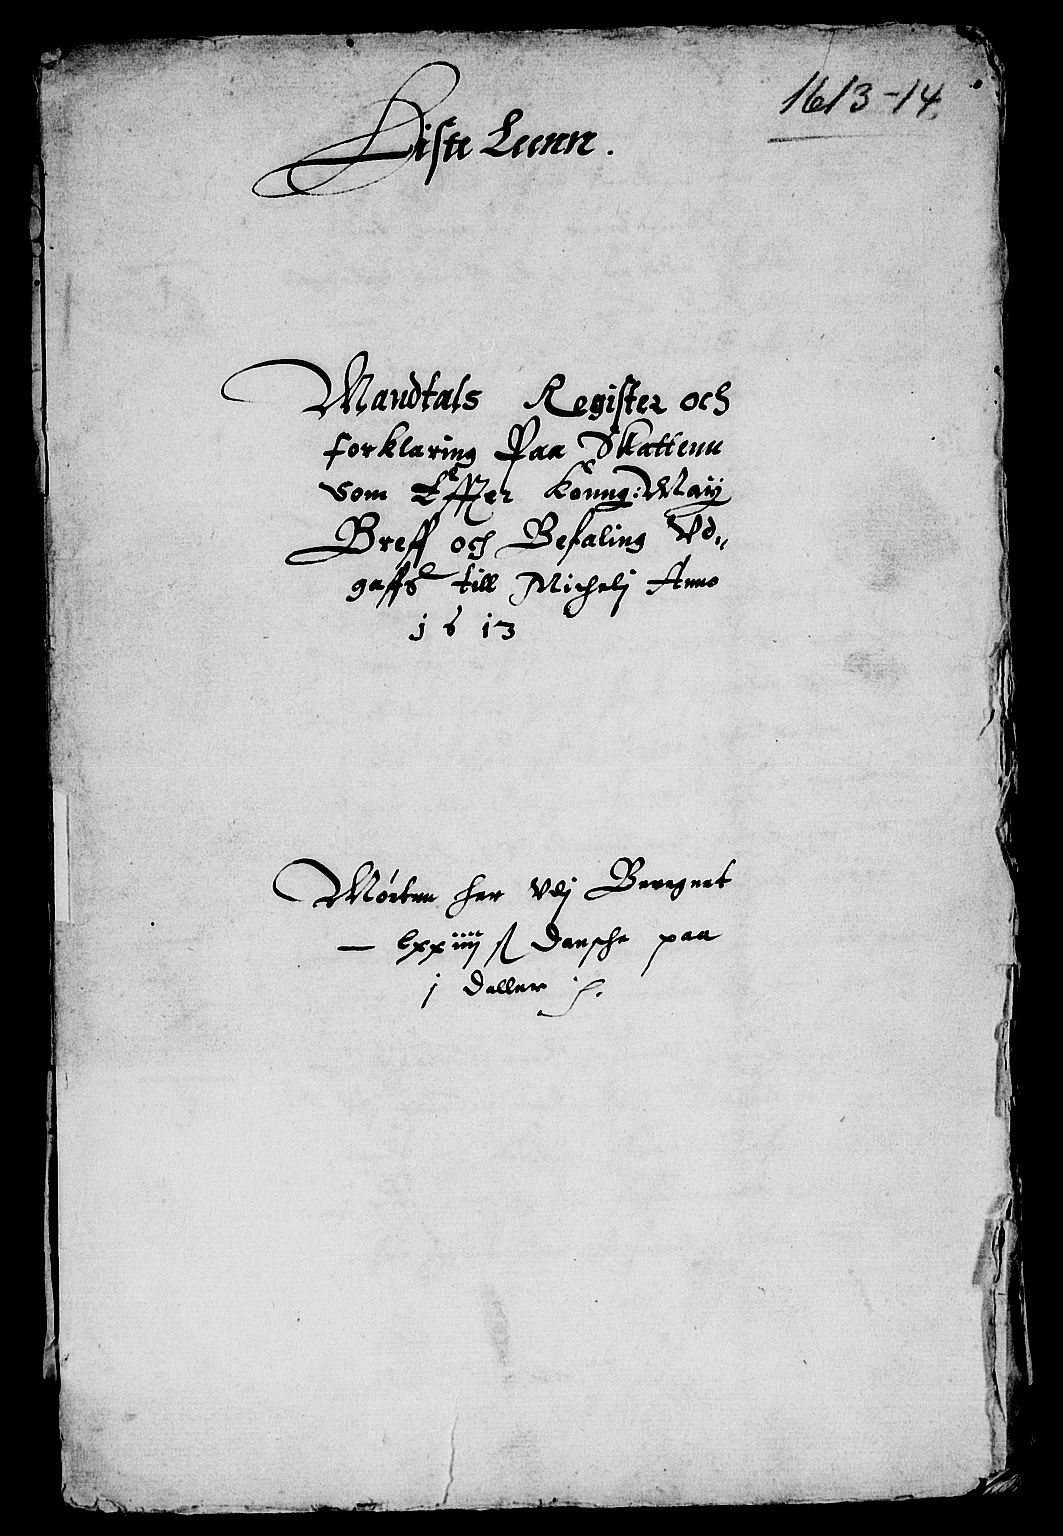 1613-14
Liste Leenn.
Mandtals Register och
forklaring Paa Skattenn
som Effter Konng: Maÿ
Breff och Befaling Vd„
gaffs till Michelj Anno
1613
Mønten her Vdj Beregnet
— lxxiiij ß Dansche paa
j Daller